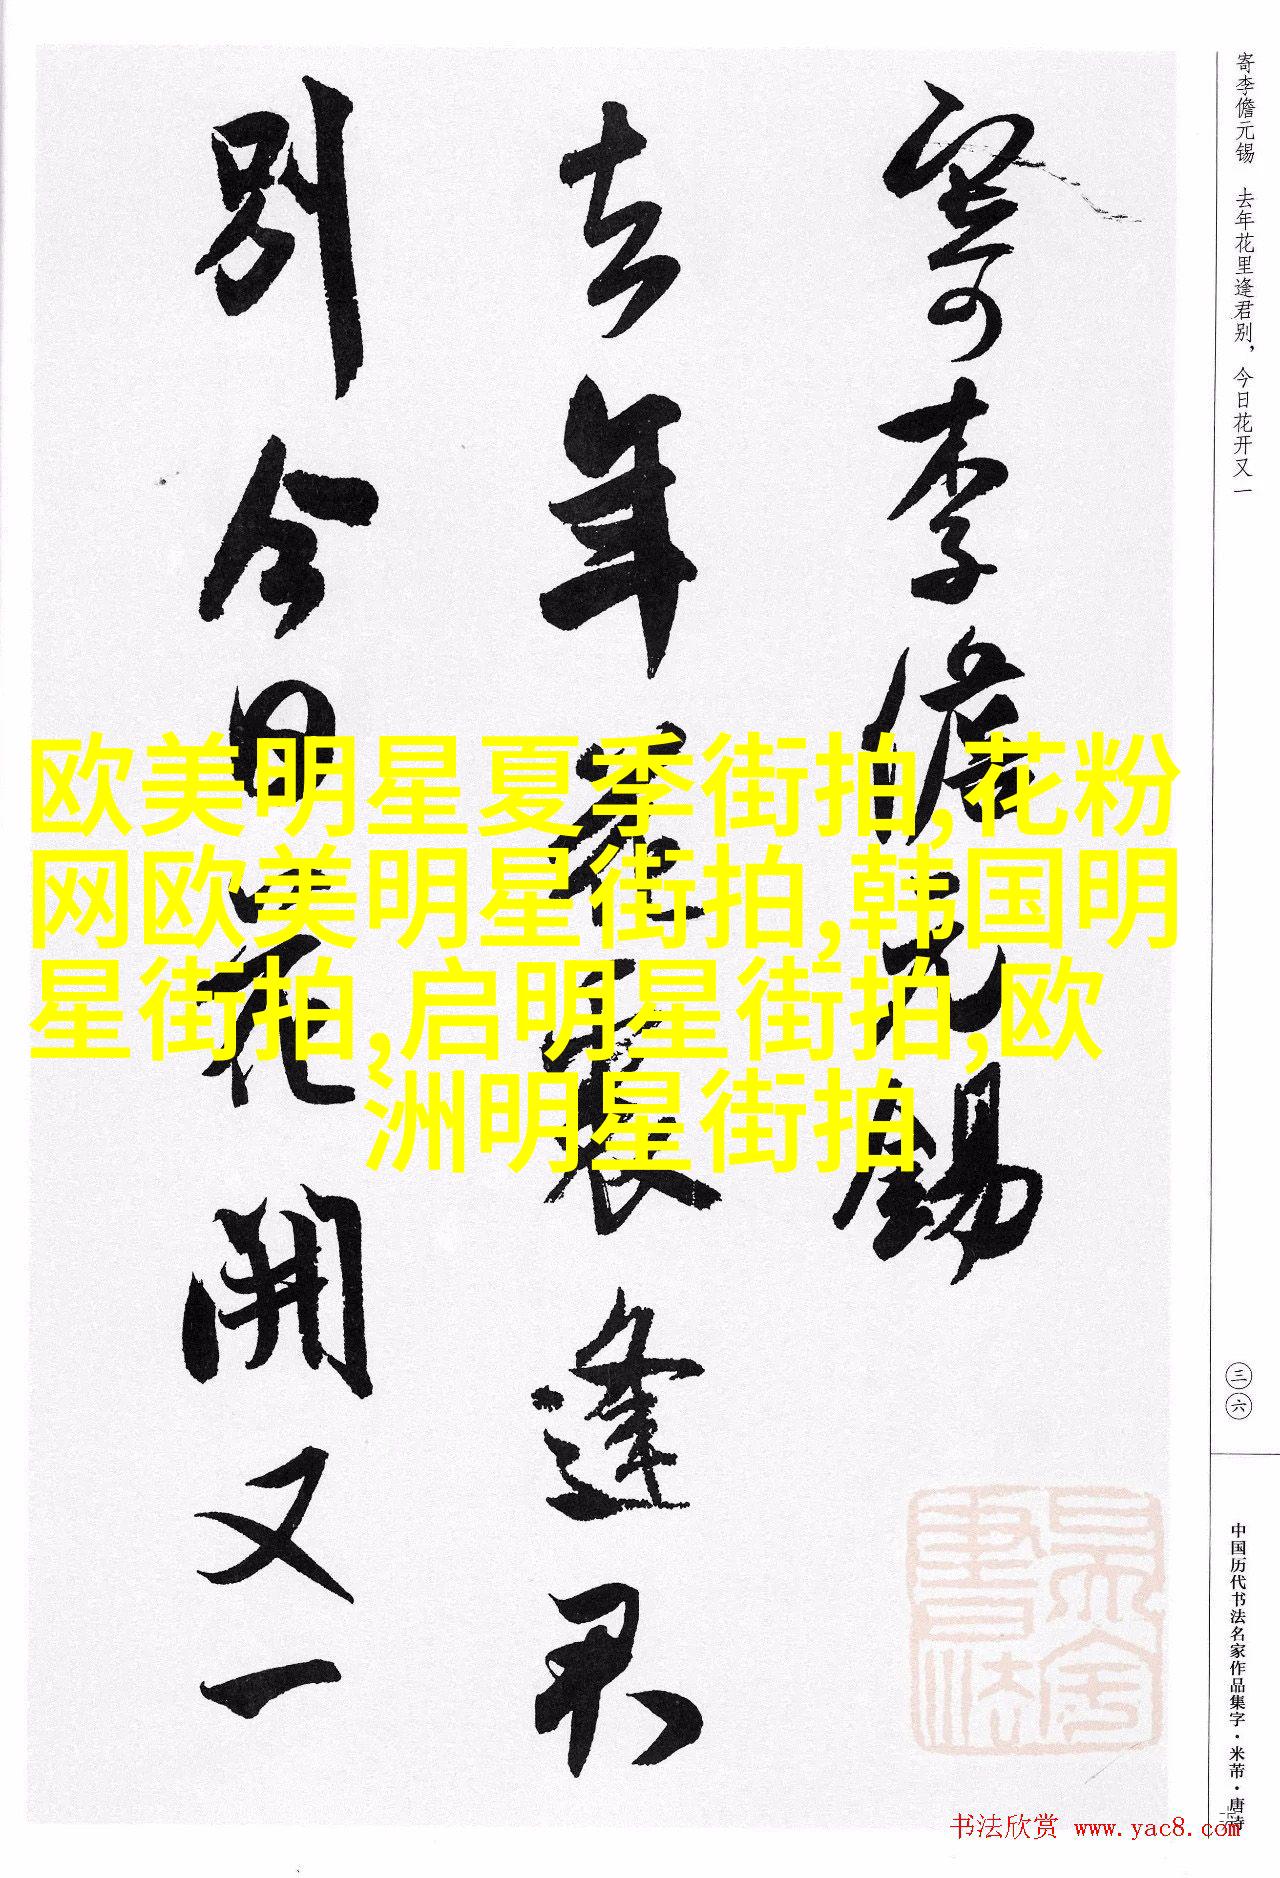 寄李儋元锡　去年花里逢君别，今日花开又一
寄李儋元錫
去年花裏逢君
別今日花開又一
欧美明星夏季街拍,花粉
网欧美明星街拍,韩国明
星街拍,启明星街拍,欧
洲明星街拍
三六
中国历代书法名家作品集字·米芾·唐诗
书法欣赏 www.yac8.com